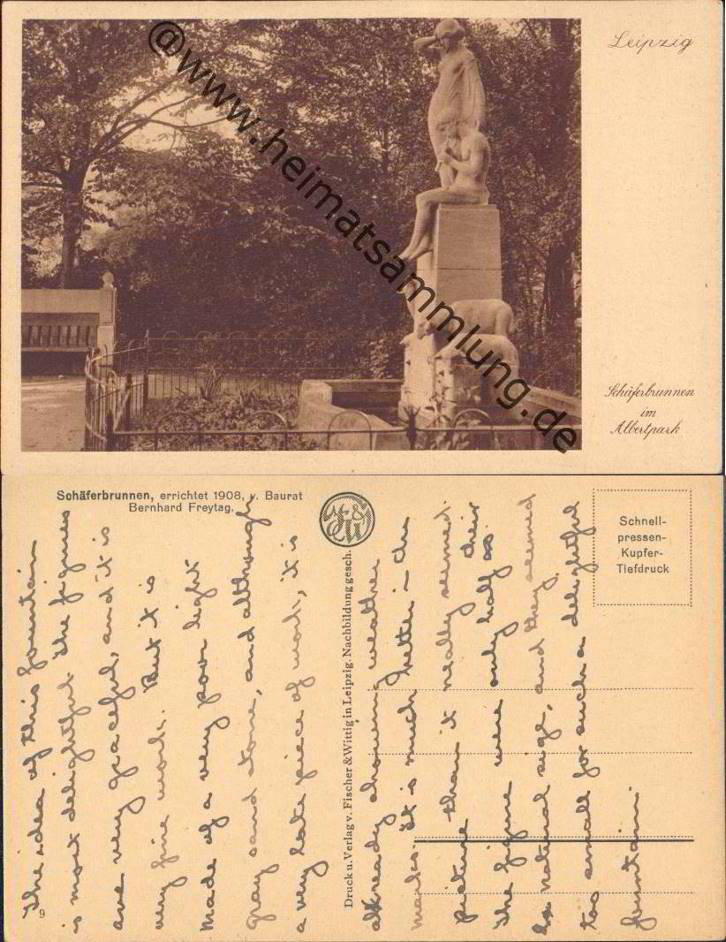 Leipzig
Schäferbrunnen
im
Albertpark
@www.heimatsammlung.de
Schäferbrunnen, errichtet 1908, v. Baurat
Bernhard Freytag.
F&W
Schnell-
pressen-
Kupfer-
Tiefdruck
Druck u. Verlag v. Fischer & Wittig in Leipzig. Nachbildung gesch.
9
The idea of this fountain
is most delightful the figures
are very graceful, and it is
very fine work. But it is
made of a very poor light
gray sand stone, and although
a very late piece of work, it is
already showing weather
marks. It is much better in the
picture than it really seemed.
The figure were only half as their
natural size, and they seemed
too small for such a delightful
fountain